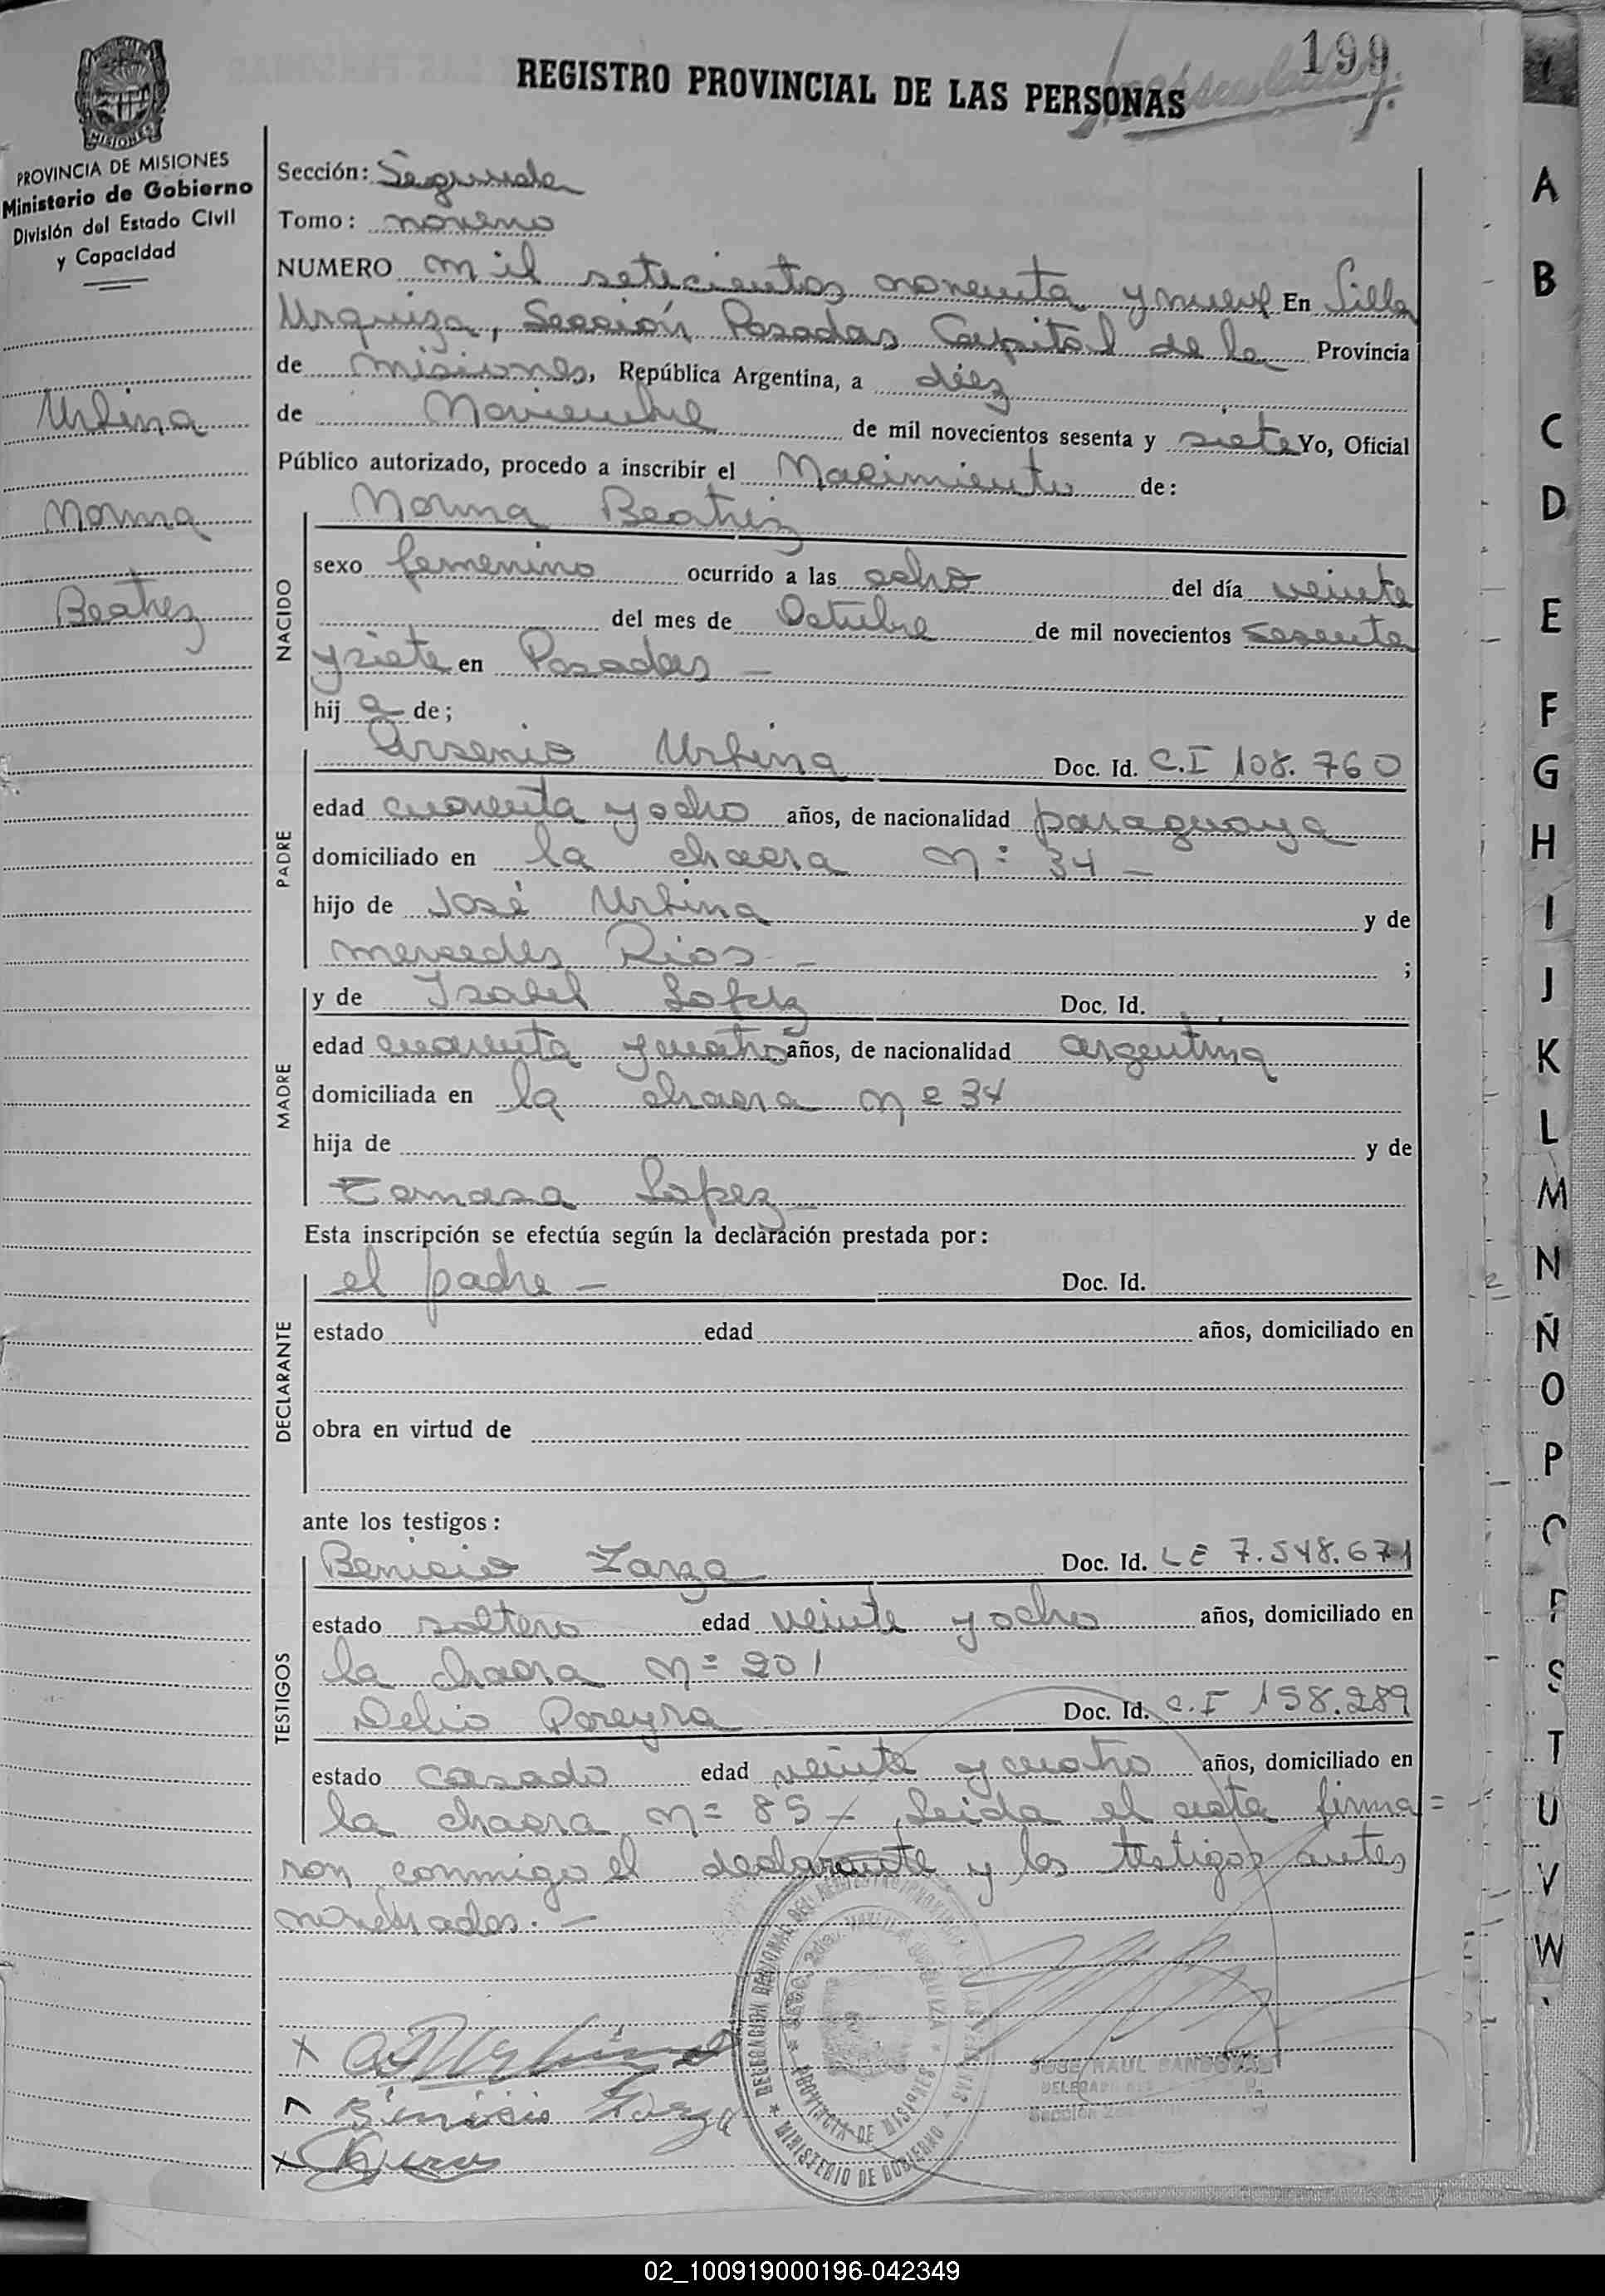 199
REGISTRO PROVINCIAL DE LAS PERSONAS
MISIONES
PROVINCIA DE MISIONES
Ministerio de Gobierno
División del Estado Civil
y Capacidad
Urbina
Norma
Beatriz
Sección: Segunda
Tomo: noveno
NUMERO mil setecientos noventa y nueve En Villa
Urquiza, Sección Posadas Capital de la Provincia
de misiones, República Argentina, a diéz
de Noviembre de mil novecientos sesenta y siete Yo, Oficial
Público autorizado, procedo a inscribir el Nacimiento de:
Norma Beatriz
NACIDO
sexo femenino ocurrido a las ocho del día veinte
del mes de Octubre de mil novecientos sesenta
y siete en Posadas —
hij a de;
PADRE
Arsenio Urbina Doc. Id. C.I 108.760
edad cuarenta y ocho años, de nacionalidad paraguaya
domiciliado en la chacra Nº 34 —
hijo de José Urbina y de
mercedes Rios — ;
MADRE
y de Isabel Lopez Doc. Id.
edad cuarenta y cuatro años, de nacionalidad argentina
domiciliada en la chacra nº 34
hija de y de
Tomasa Lopez —
Esta inscripción se efectúa según la declaración prestada por:
DECLARANTE
el padre — Doc. Id.
estado edad años, domiciliado en
obra en virtud de
ante los testigos:
TESTIGOS
Benicio Zarza Doc. Id. LE 7.548.671
estado soltero edad veinte y ocho años, domiciliado en
la chacra nº 201
Delio Pereyra Doc. Id. C.I 158.289
estado casado edad veinte y cuatro años, domiciliado en
la chacra nº 85 — Leida el acta firma=
ron conmigo el declarante y los testigos antes
nombrados. —
DELEGACION REGIONAL DEL REGISTRO PROVINCIAL DE LAS PERSONAS
SECC. 2da. VILLA URQUIZA
PROVINCIA DE MISIONES
MINISTERIO DE GOBIERNO
x A Urbina
Binisio Zarza
x
JOSE RAUL SANDOVAL
DELEGADO
Sección
A
B
C
D
E
F
G
H
I
J
K
L
M
N
Ñ
O
P
S
T
U
V
W
02_100919000196-042349